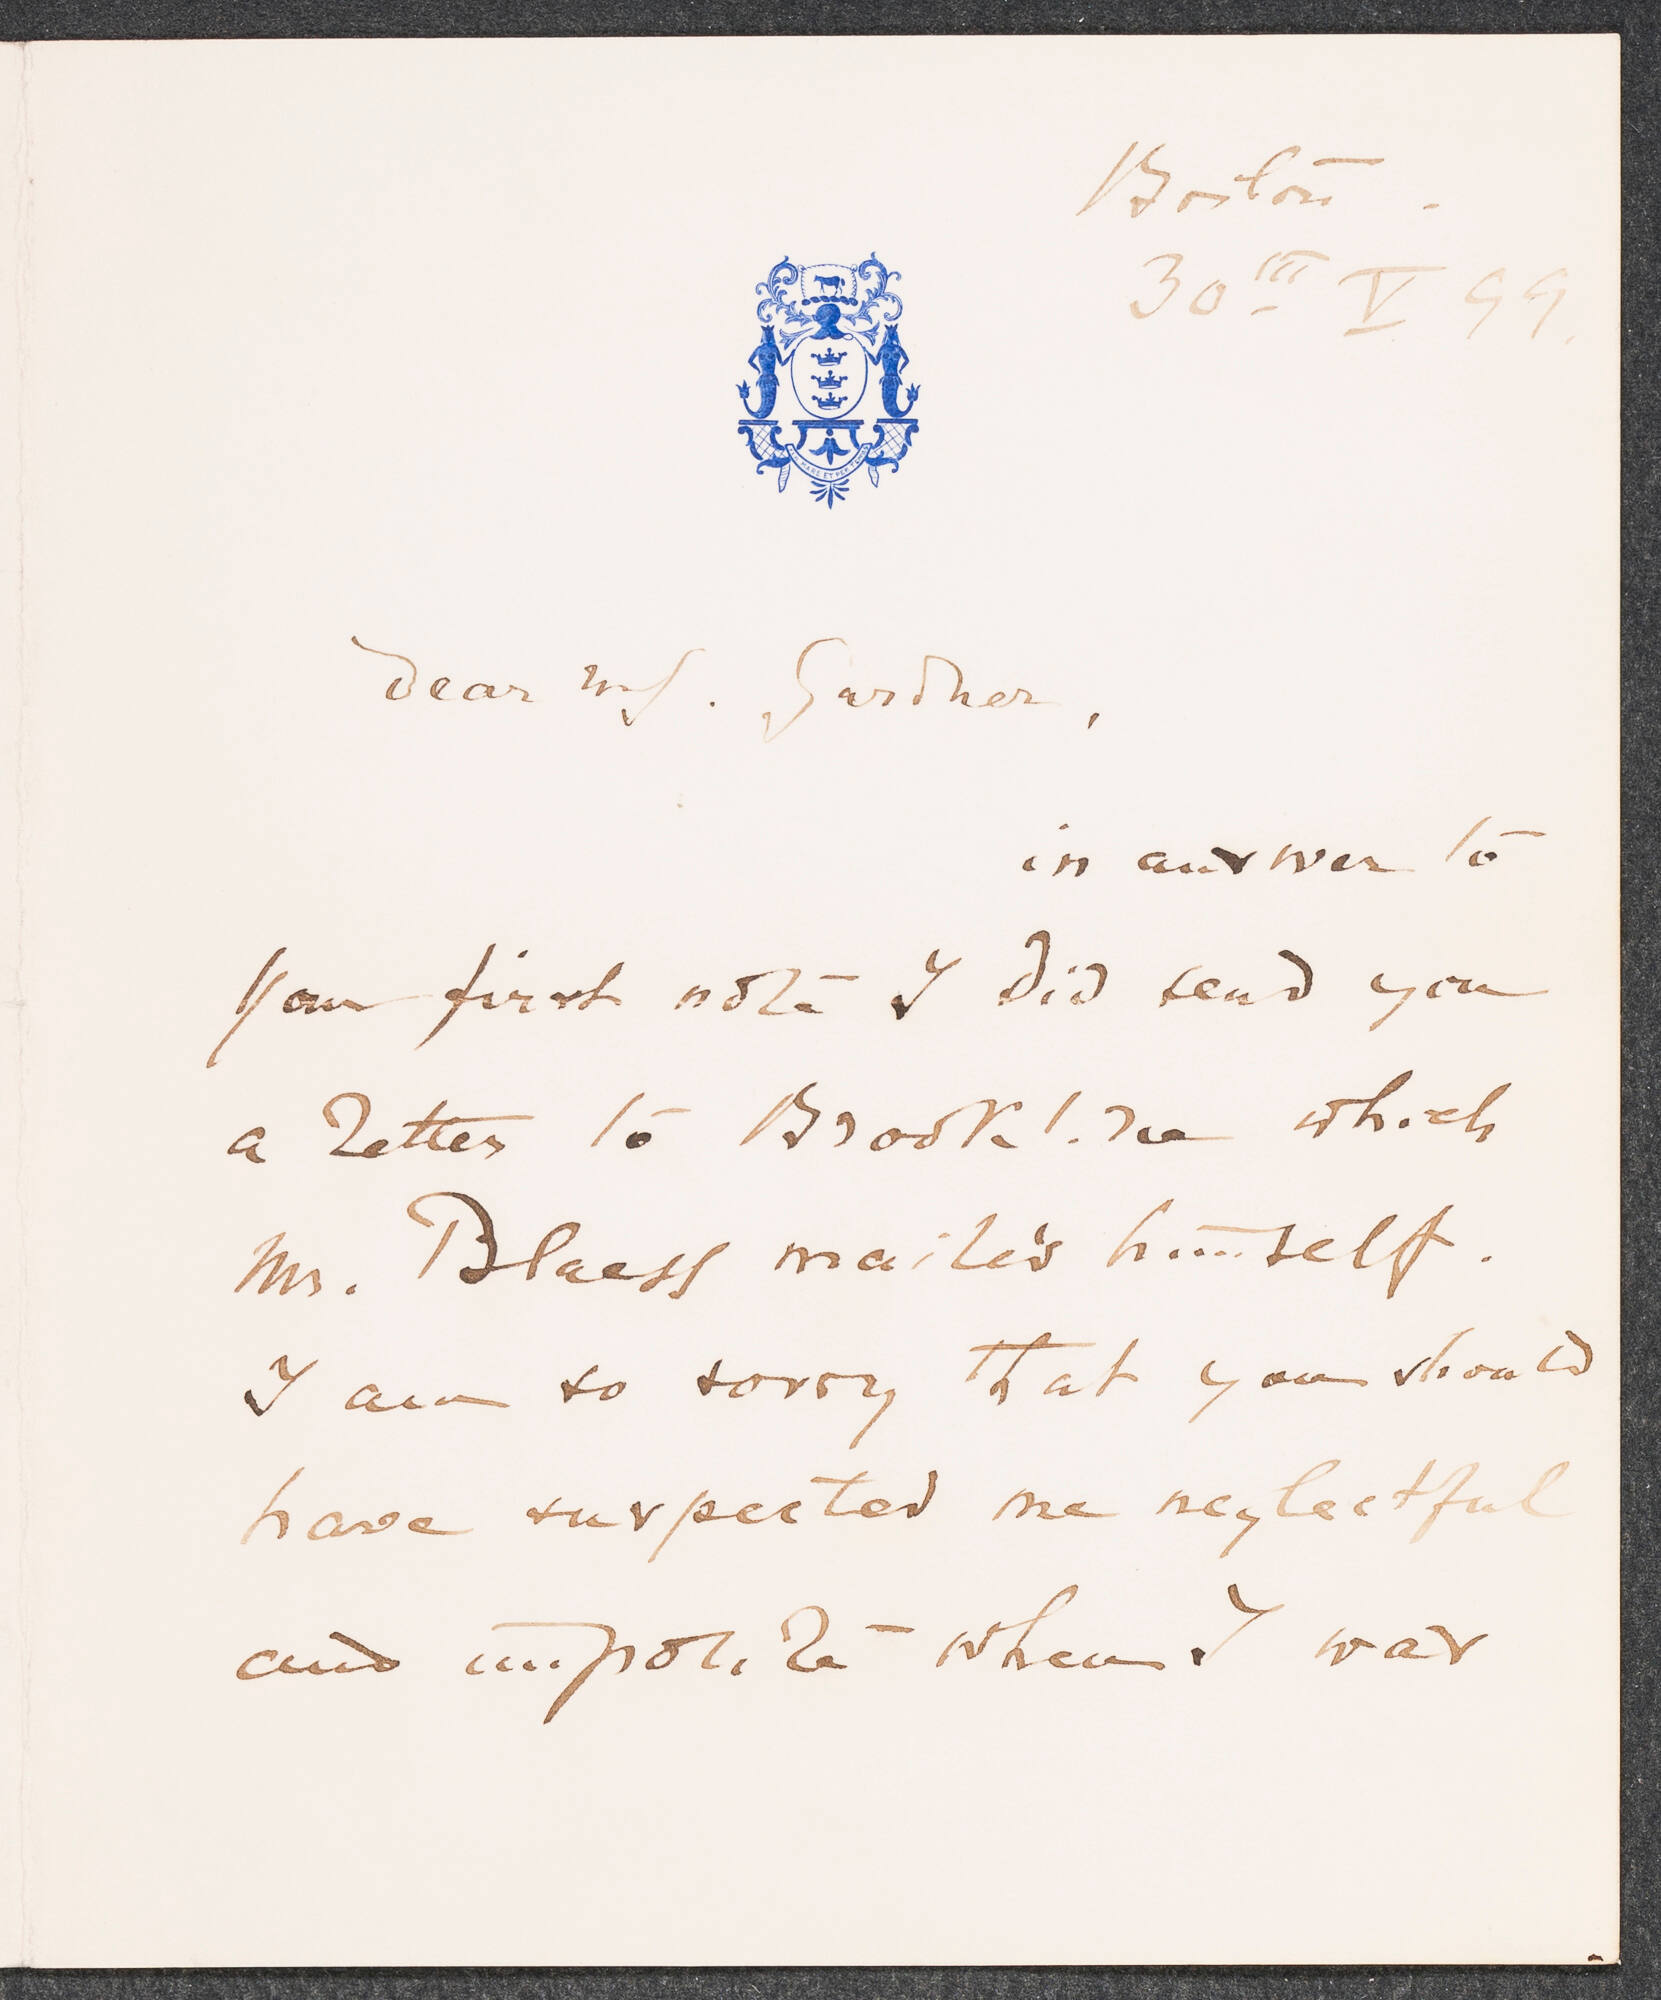 Boston.
30th V 99.
PER MARE ET PER TERRAS
Dear Mrs. Gardner,
in answer to
your first note I did send you
a letter to Brookline which
Mr. Blaess mailed himself.
I am so sorry that you should
have suspected me neglectful
and impolite when I was